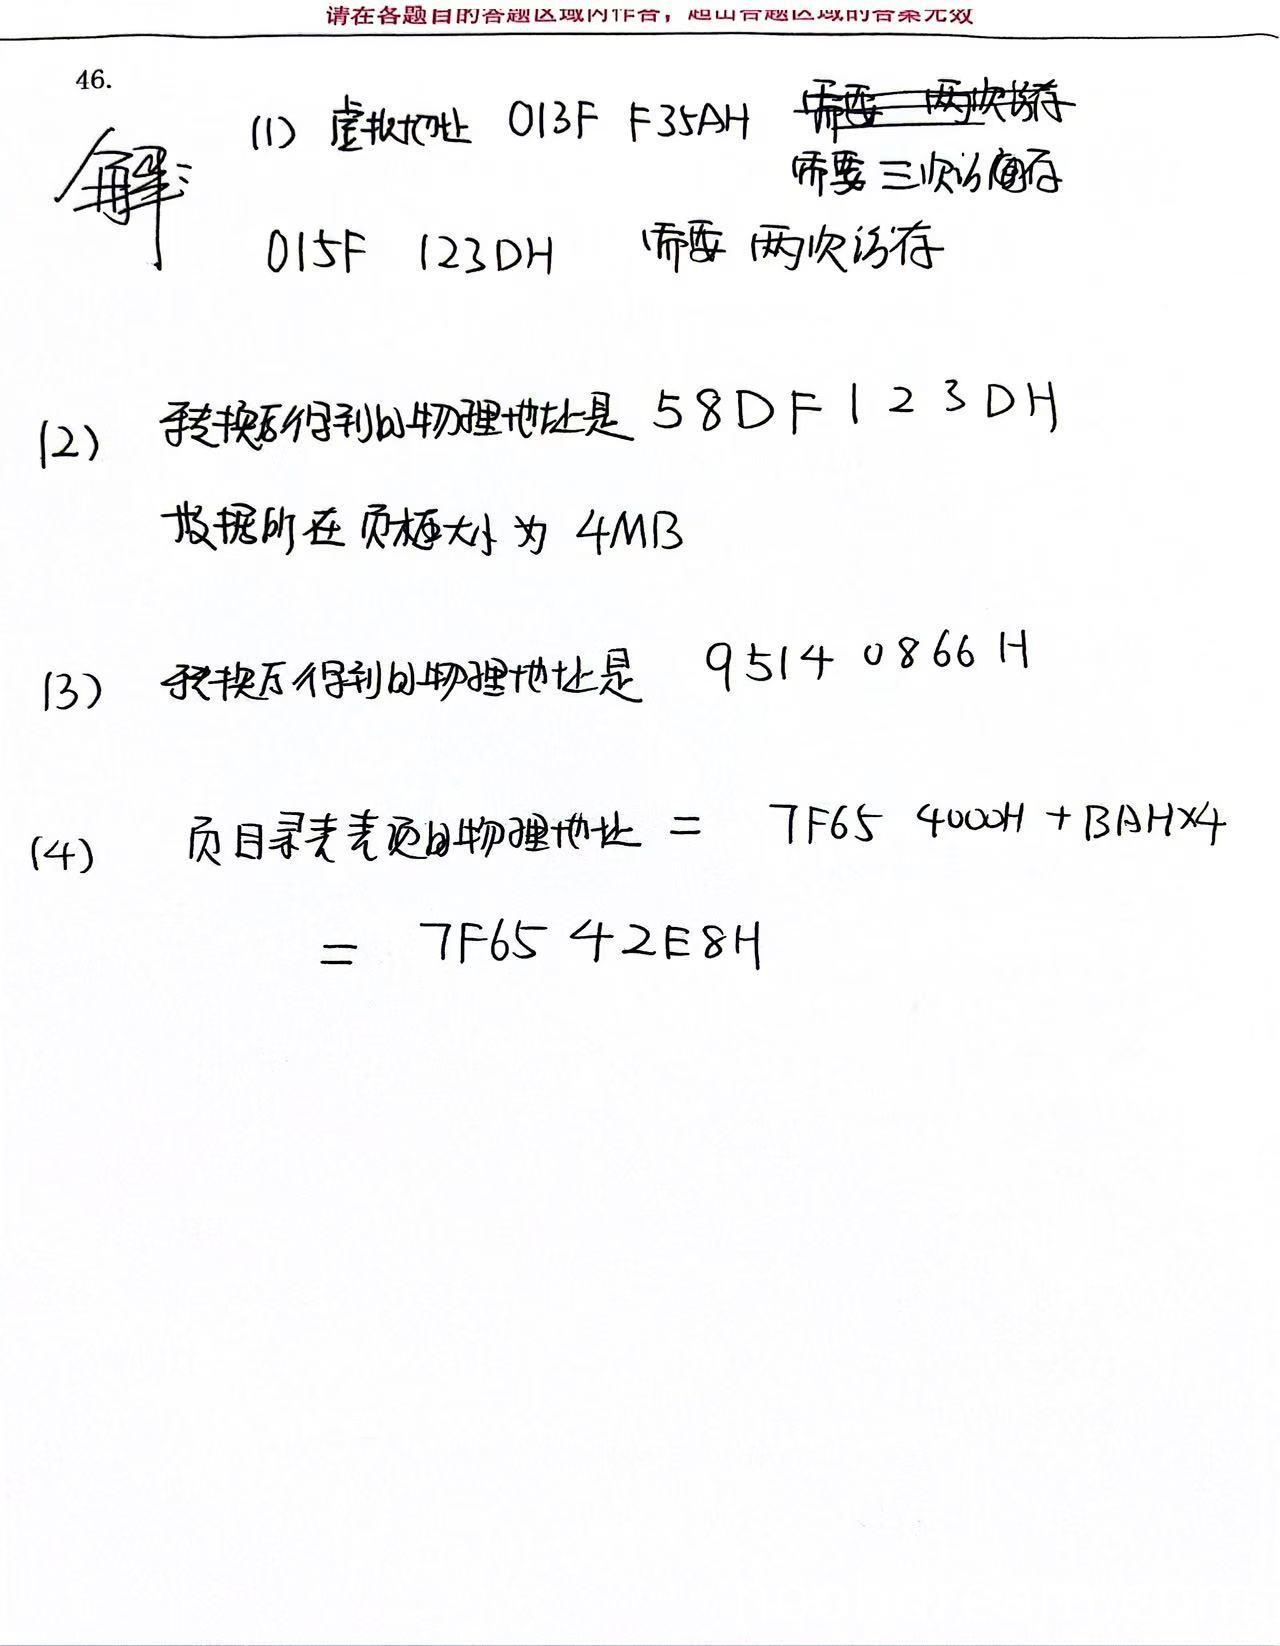 请在各题目的答题区域内作答，超出答题区域的答案无效
46.
解：
(1) 虚拟地址 013F F35AH 需要 两次访存
需要 三次访存
015F 123DH 需要 两次访存
(2) 转换后得到的物理地址是 58DF123DH
数据所在页框大小为 4MB
(3) 转换后得到的物理地址是 9514 0866H
(4) 页目录表表项的物理地址 = 7F65 4000H + BAH×4
= 7F65 42E8H